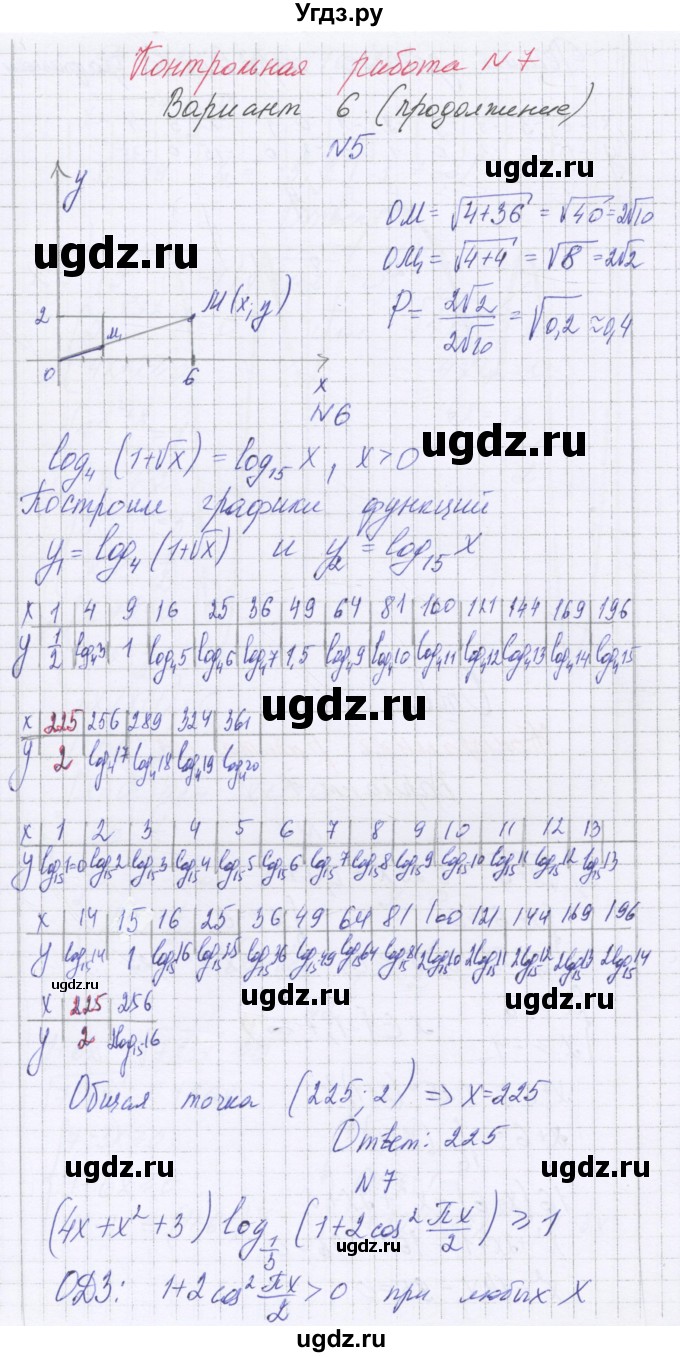 Угдз.ру
Контрольная работа N 7
Вариант 6 (продолжение)
N5
ugdz.ru
y
ugdz.ru
OM = √4+36 = √40 = 2√10
OM₁ = √4+4 = √8 = 2√2
ugdz.ru
P = 2√2/2√10 = √0,2 ≈ 0,4
2
M(x; y)
M₁
0
6
x
N6
ugdz.ru
log₄(1+√x) = log₁₅ x, x>0
Построим графики функций
y₁ = log₄(1+√x) и y₂ = log₁₅ x
x 1 4 9 16 25 36 49 64 81 100 121 144 169 196
y 1/2 log₄3 1 log₄5 log₄6 log₄7 1,5 log₄9 log₄10 log₄11 log₄12 log₄13 log₄14 log₄15
ugdz.ru
x 225 256 289 324 361
y 2 log₄17 log₄18 log₄19 log₄20
x 1 2 3 4 5 6 7 8 9 10 11 12 13
y log₁₅1=0 log₁₅2 log₁₅3 log₁₅4 log₁₅5 log₁₅6 log₁₅7 log₁₅8 log₁₅9 log₁₅10 log₁₅11 log₁₅12 log₁₅13
x 14 15 16 25 36 49 64 81 100 121 144 169 196
y log₁₅14 1 log₁₅16 log₁₅25 log₁₅36 log₁₅49 log₁₅64 log₁₅81 2log₁₅10 2log₁₅11 2log₁₅12 2log₁₅13 2log₁₅14
ugdz.ru
ugdz.ru
ugdz.ru
x 225 256
y 2 2log₁₅16
Общая точка (225; 2) => x=225
Ответ: 225
ugdz.ru
ugdz.ru
N7
(4x+x²+3) log₁/₃ (1+2cos² πx/2) ≥ 1
ugdz.ru
ОДЗ: 1+2cos² πx/2 > 0 при любых x
ugdz.ru